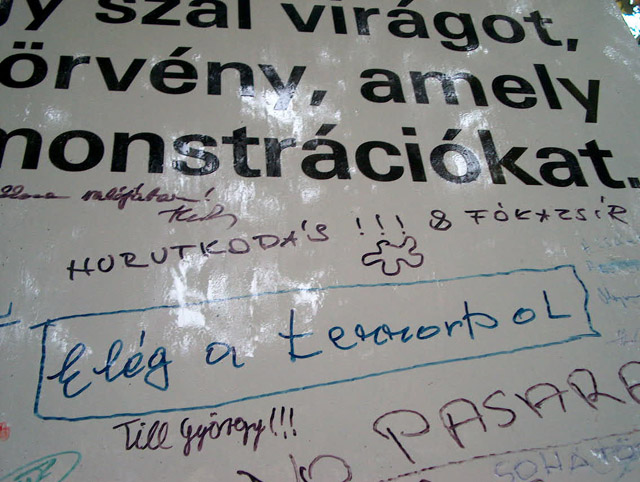 y szál virágot,
örvény, amely
monstrációkat.
HURUTKODÁS !!! & FŐKAZSÍR
Elég a terrorból
Till György!!!
NO PASARA
SOHATÖ